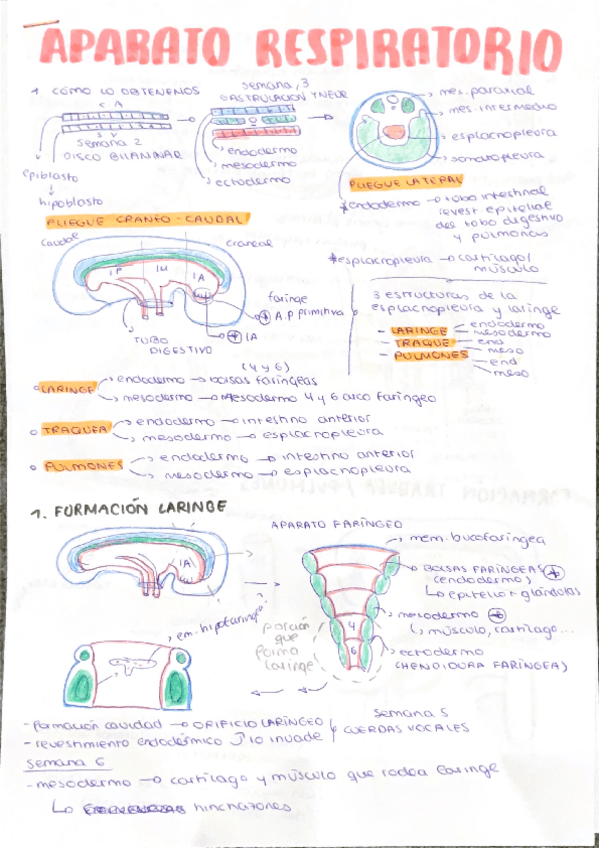 APARATO RESPIRATORIO
1 CÓMO LO OBTENEMOS
semana 3
GASTRULACION Y NEUR
C A
semana 2
DISCO BILAMINAR
epiblasto
hipoblasto
endodermo
mesodermo
ectodermo
mes. paraxial
mes. intermedio
esplacnopleura
somatopleura
PLIEGUE LATERAL
*endodermo → tubo intestinal
revest epitelial
del tubo digestivo
y pulmones
*esplacnopleura → cartílago/
músculo
PLIEGUE CRANEO-CAUDAL
caudal
craneal
IP IM IA
faringe
+ A.P primitiva
+ IA
TUBO
DIGESTIVO
3 estructuras de la
esplacnopleura y laringe
- LARINGE endodermo
mesodermo
- TRAQUE endo
meso
- PULMONES end
meso
(4 y 6)
LARINGE endodermo → bolsas faríngeas
mesodermo → mesodermo 4 y 6 arco faríngeo
TRAQUEA endodermo → intestino anterior
mesodermo → esplacnopleura
PULMONES endodermo → intestino anterior
mesodermo → esplacnopleura
1. FORMACIÓN LARINGE
APARATO FARÍNGEO
IA
mem. bucofaríngea
BOLSAS FARÍNGEAS +
(endodermo)
epitelio + glándulas
mesodermo +
músculo, cartílago...
ectodermo
(HENDIDURA FARÍNGEA)
4
6
porción
que
forma
laringe
em. hipofaringe
- formación cavidad → ORIFICIO LARÍNGEO
- revestimiento endodérmico lo invade
semana 5
CUERDAS VOCALES
semana 6
- mesodermo → cartílago y músculo que rodea laringe
hinchazones